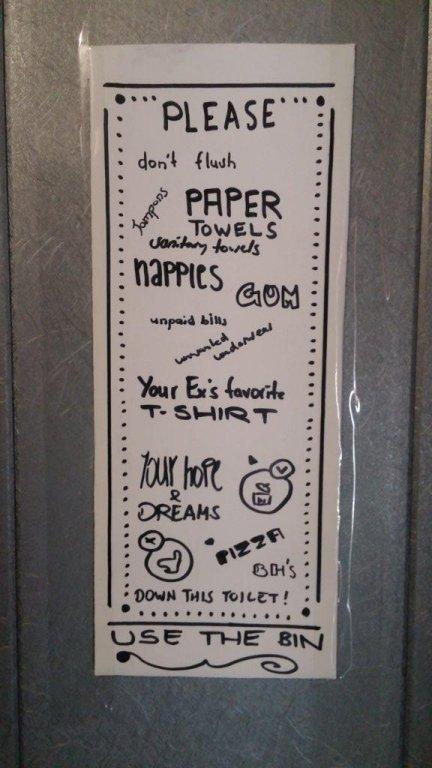 PLEASE
don't flush
Tampons
PAPER
TOWELS
sanitary towels
nappies
GUM
unpaid bills
unwanted
underwear
Your Ex's favorite
T-SHIRT
Your hope
&
DREAMS
PIZZA
DOWN THIS TOILET!
USE THE BIN